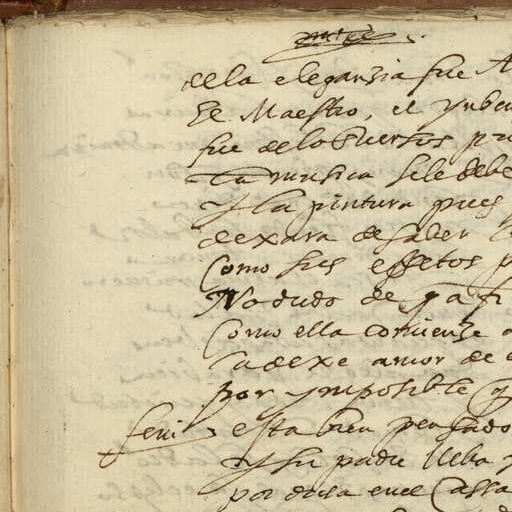 de la eleganzia fue A
El Maestro, el ynben
fue de los puertos pri
La musica se le debe
y la pintura pues
dexara de saber
Como sus effetos p
No dudo de q a fi
Como ella comienze a
la dexe amor de
por ymposible y
feni esta bien pensado
y su padre lleba
por dicha en el Cassa